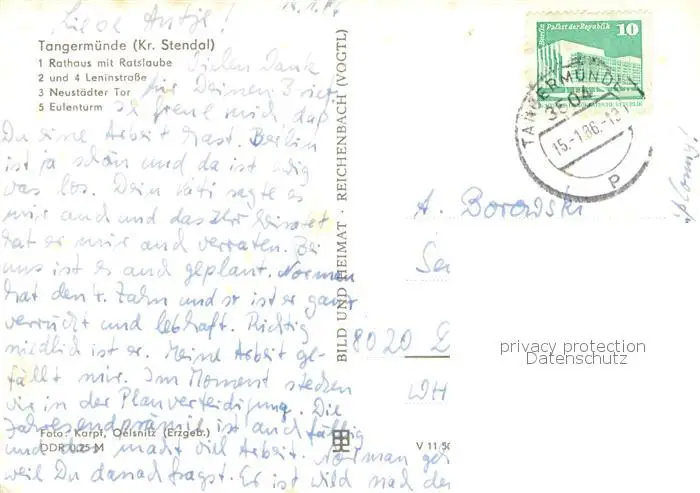 14.1.86
Liebe Antje!
Tangermünde (Kr. Stendal)
1 Rathaus mit Ratslaube
2 und 4 Leninstraße
3 Neustädter Tor
5 Eulenturm
Vielen Dank
für Deinen Brief
freue mich, daß
Du eine Arbeit hast. Berlin
ist ja schön und da ist
was los. Dein Vati sagte es
mir auch und das Ihr heiratet
hat er mir auch verraten. Bei
uns ist es auch geplant. Norman
hat den 4. Zahn und so ist er ganz
verrückt und lebhaft. Richtig
niedlich ist er. Meine Arbeit ge-
fällt mir. Im Moment stecken
wir in der Planverteidigung. Die
Jahresendprämie ist auch fällig
und das macht viel Arbeit. Norman geh
weil Du danach fragst. Er ist wild nach de
Foto: Karpf, Oelsnitz (Erzgeb.)
DDR 0,25 M
BILD UND HEIMAT · REICHENBACH (VOGTL)
V 11 50
Berlin Palast der Republik
10
TANGERMÜNDE 1
3504
15.-1.86.-13
P
A. Borowski
Se
8020 D
WH
privacy protection
Datenschutz